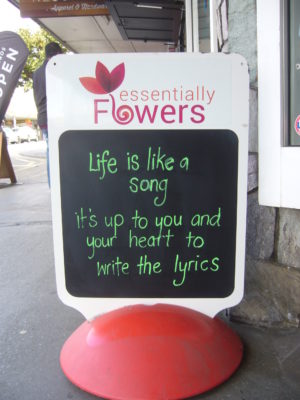 Apparel & Workwear
OPEN
essentially
Flowers
Life is like a
song
it's up to you and
your heart to
write the lyrics